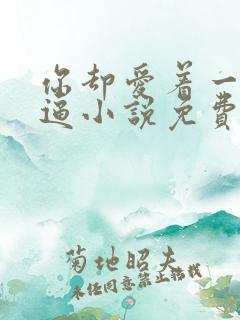 你却爱着一
逼小说免费
菊地昭夫
未经同意禁止转载